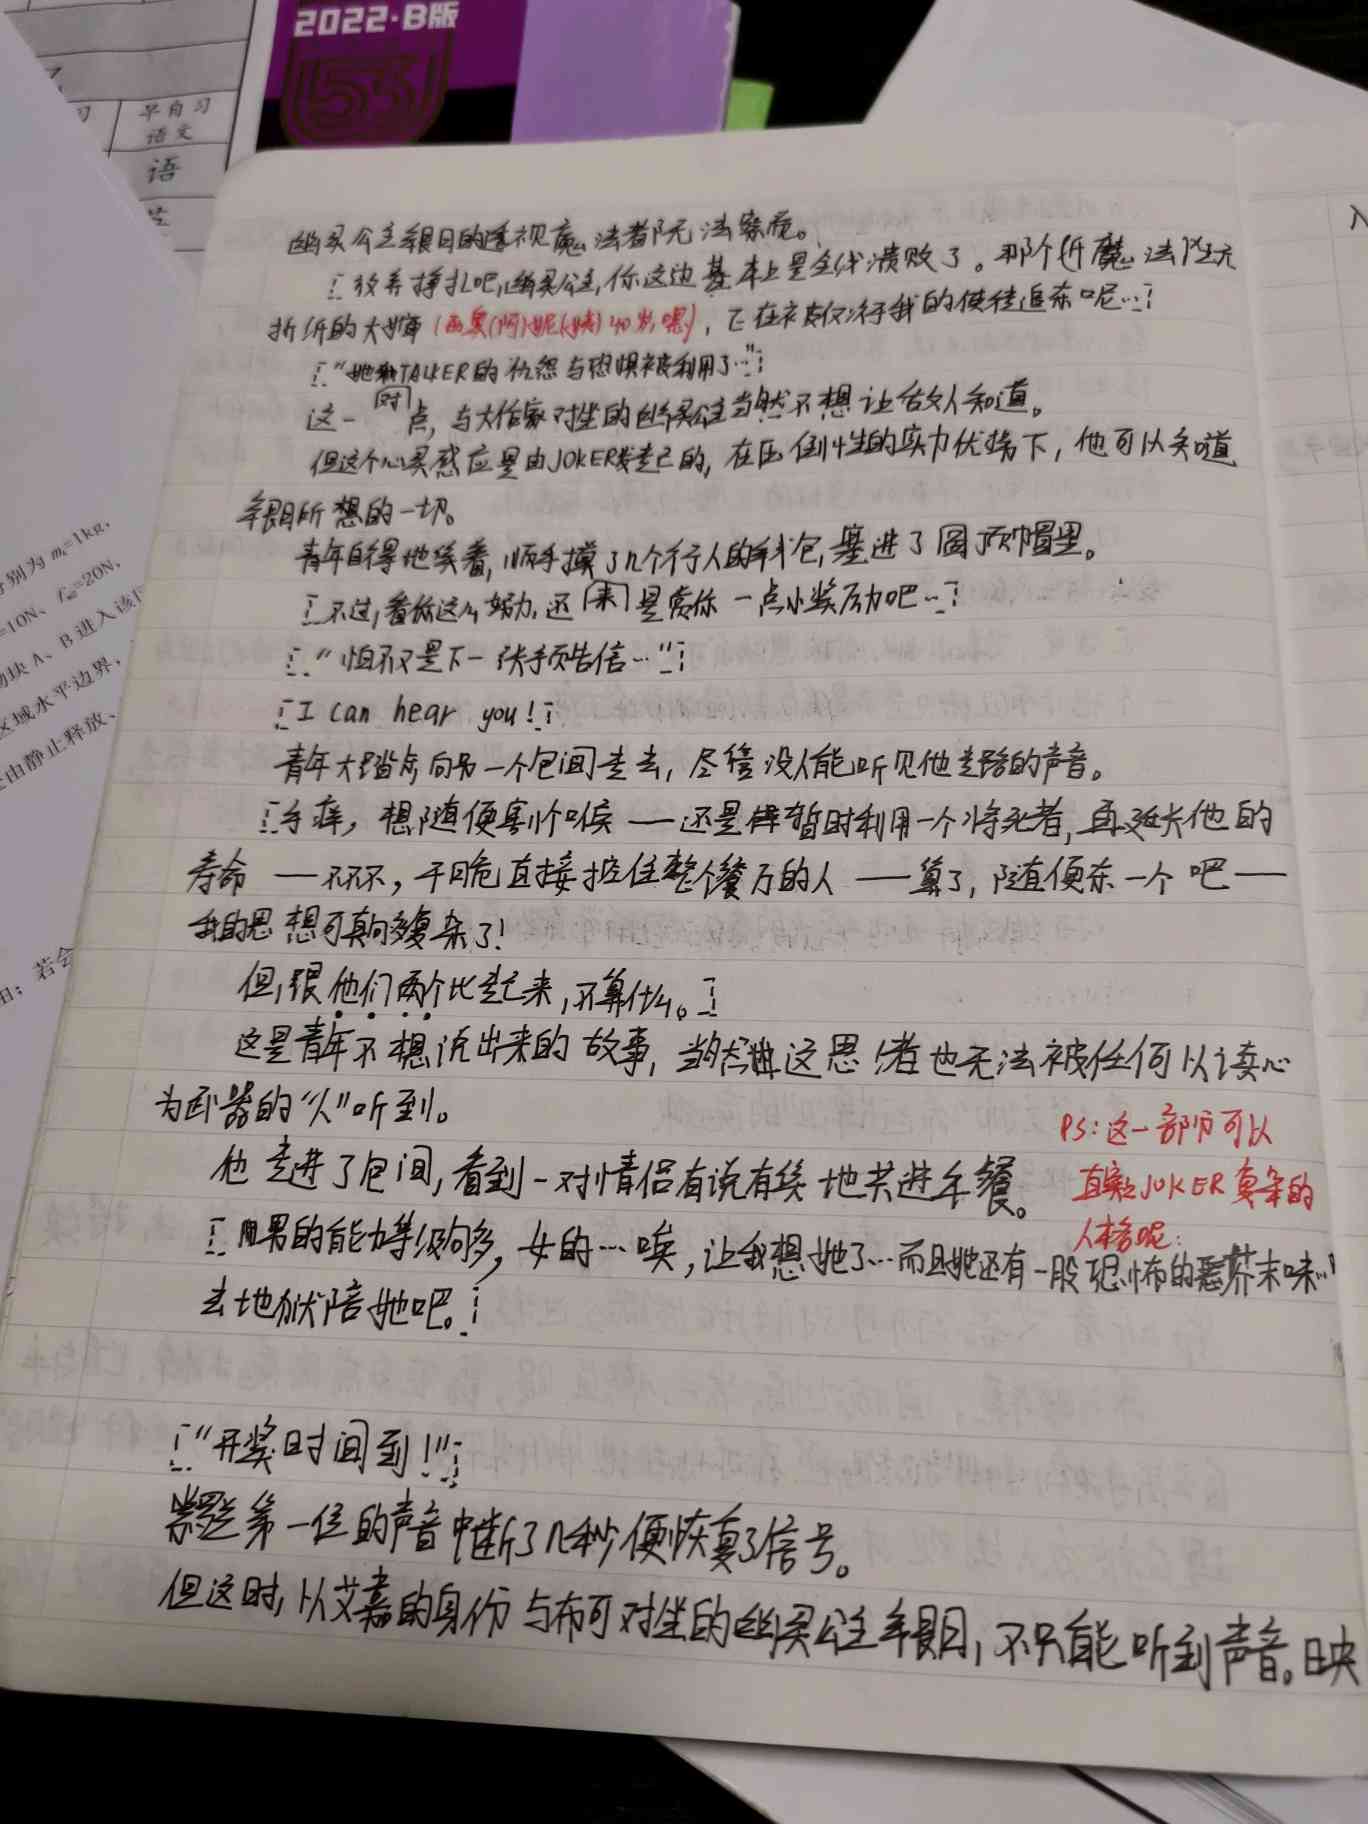 2022·B版
53
早自习
语文
语
分别为 m=1kg,
=10N、f=20N,
物块 A、B 进入该
区域水平边界,
由静止释放、
若会
幽灵公主银目的透视魔法都无法察觉。
[放弃挣扎吧,幽灵公主,你这边基本上是全线溃败了。那个折魔法阵无
折纸的大婶 ,正在被仅次于我的使徒追杀呢…]
[“她和TALKER的仇怨与恐惧被利用了…”]
这一时点,与大作家对坐的幽灵公主当然不想让敌人知道。
但这个心灵感应是由JOKER发起的,在压倒性的实力优势下,他可以知道
银目所想的一切。
青年自得地笑着,顺手摸了几个行人的钱包,塞进了圆顶帽里。
[不过,看你这么努力,还 来 是赏你一点小奖励吧…]
[“怕不又是下一张预告信…”]
[I can hear you!]
青年大踏步向另一个包间走去,尽管没人能听见他走路的声音。
[手痒,想随便割个喉——还是暂时利用一个将死者,再延长他的
寿命——不不不,干脆直接控住整个餐厅的人——算了,随便杀一个吧——
我的思想可真够复杂了!
但,跟他们两个比起来,不算什么。]
这是青年不想说出来的故事,当然这思绪也无法被任何以读心
为武器的“人”听到。
他走进了包间,看到一对情侣有说有笑地共进午餐。
PS:这一部分可以
直窥JOKER真条的
人格呢:
[男的能力等级够多,女的…唉,让我想她了…而且她还有一股恐怖的恶芥末味…
去地狱陪她吧。]
[“开奖时间到!”]
第一位的声音中断了几秒便恢复了信号。
但这时,以艾嘉的身份与布可对坐的幽灵公主银目,不只能听到声音。映